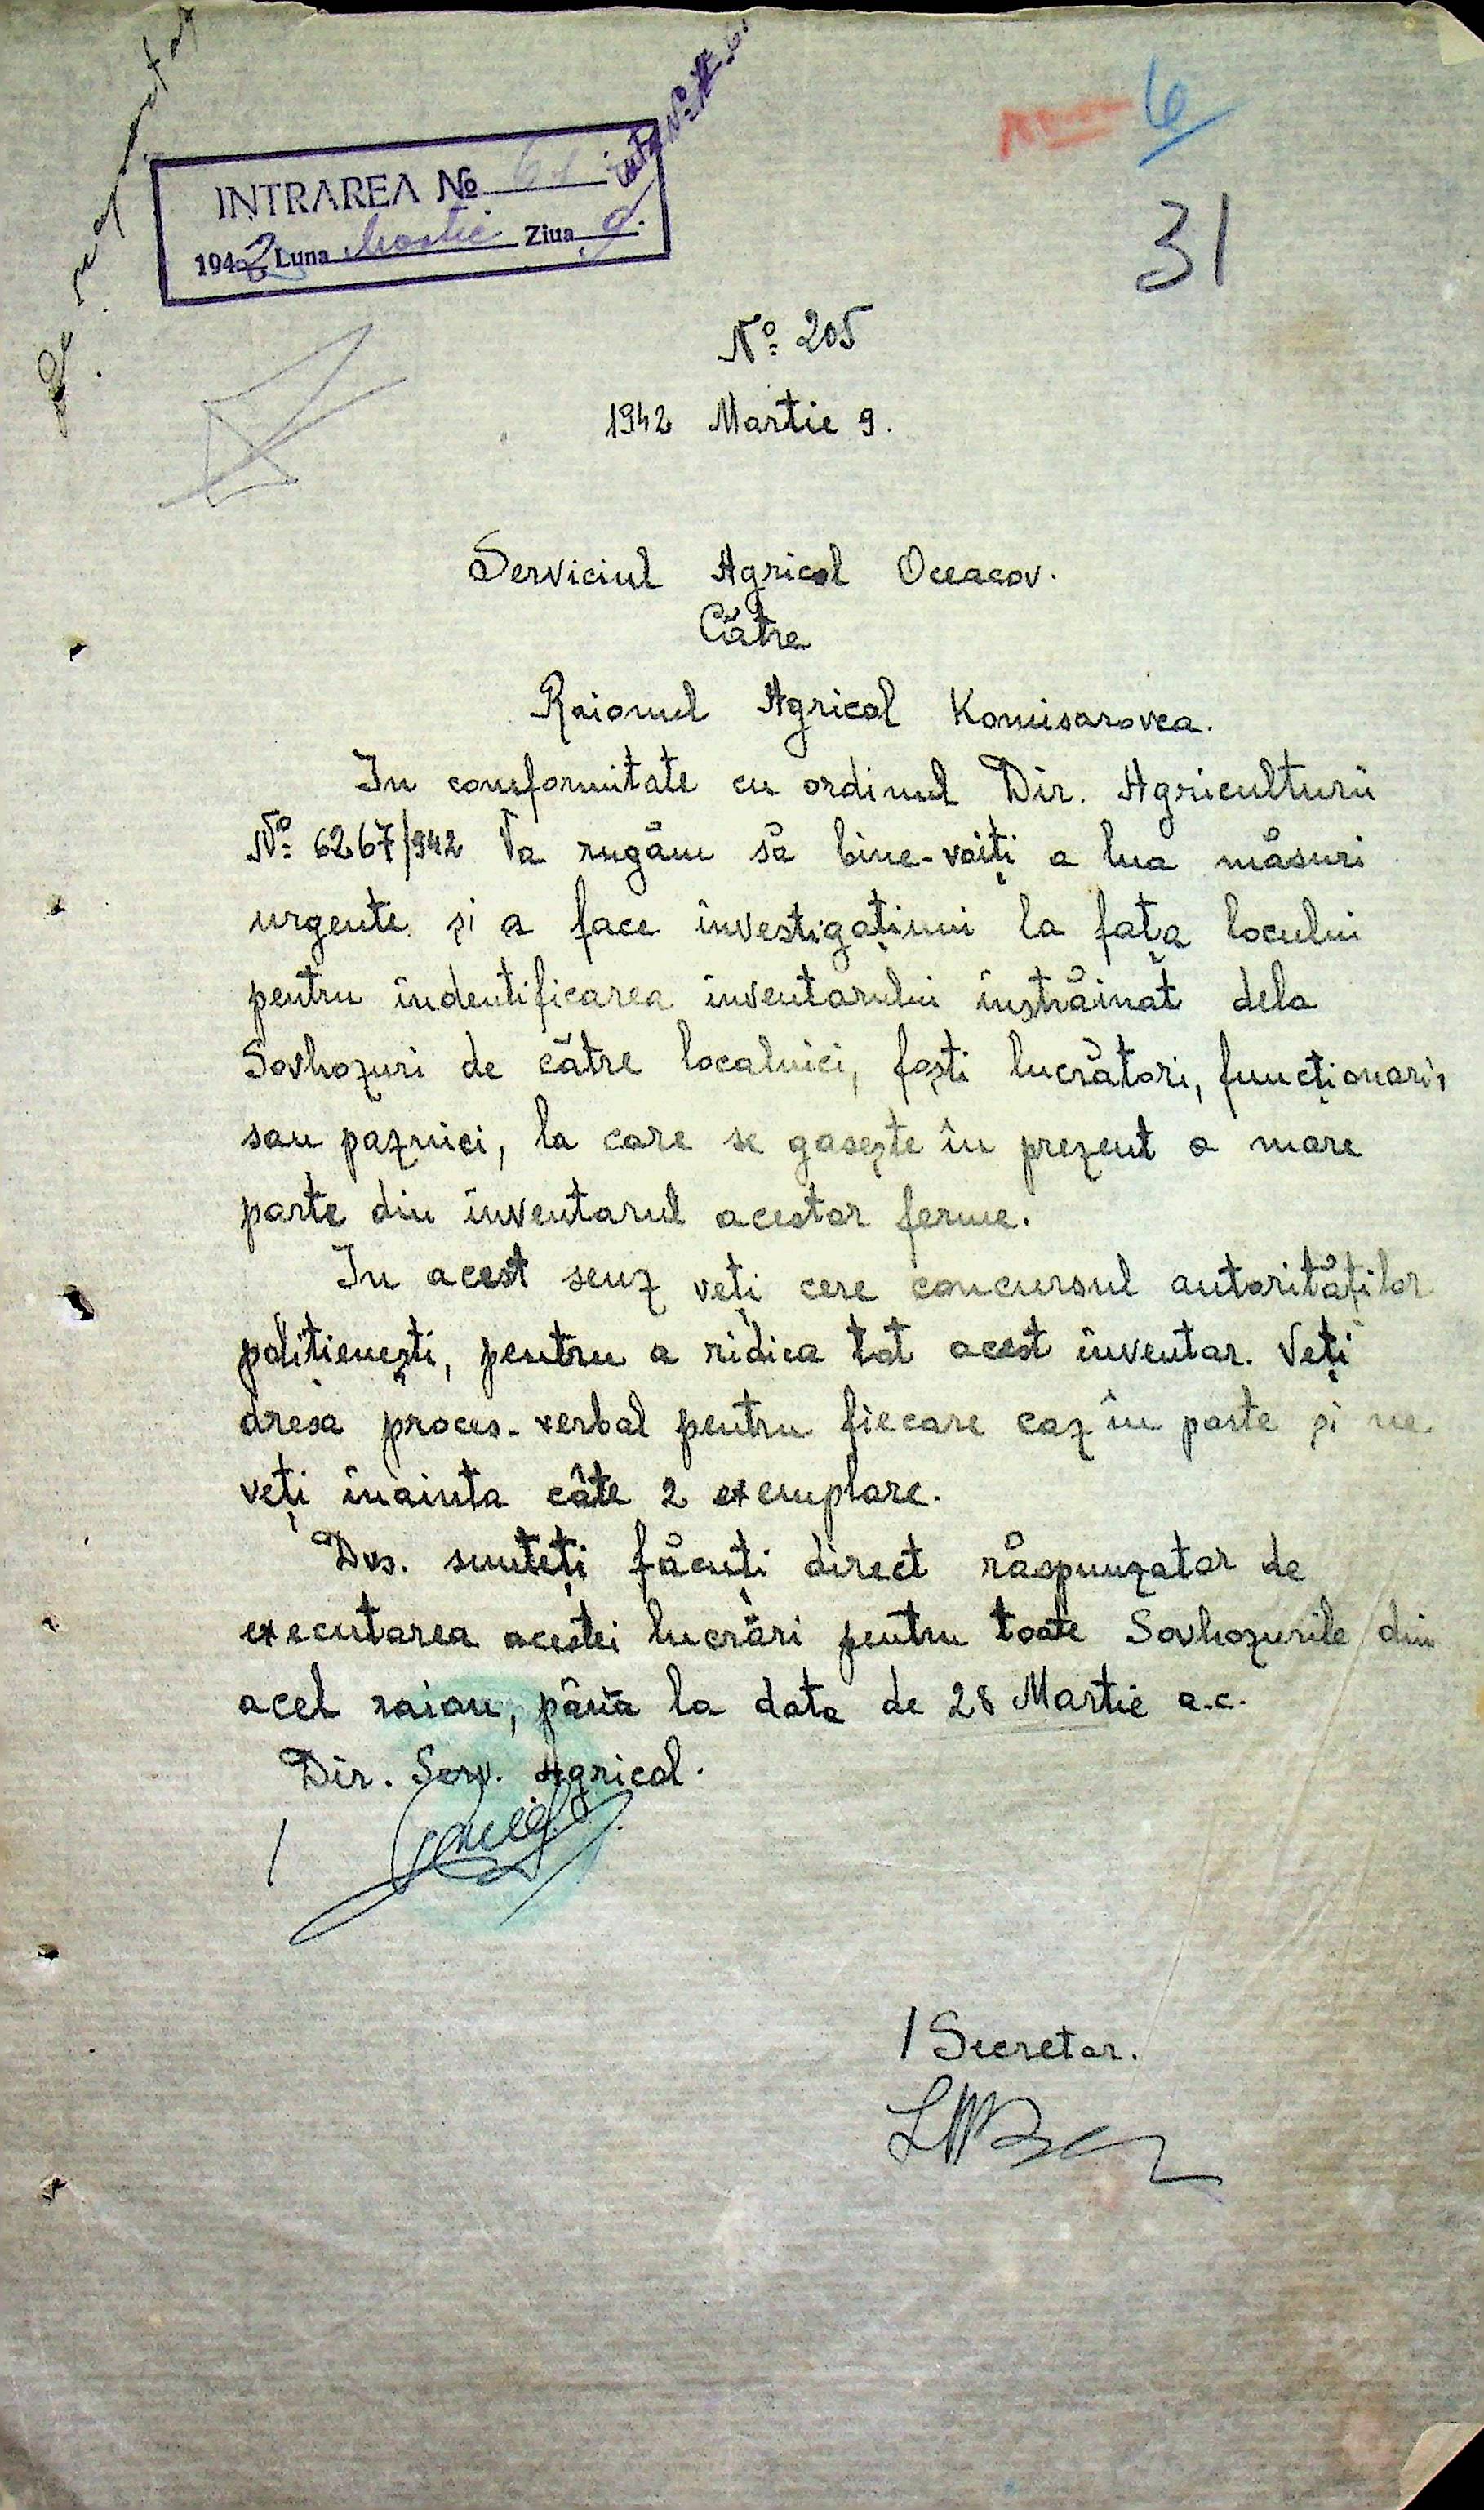 6
31
INTRAREA № 61
1942 Luna Martie Ziua 9.
№ 205
1942 Martie 9.
Serviciul Agricol Oceacov.
Către
Raionul Agricol Komisarovca.
In comformitate cu ordinul Dir. Agriculturii
№ 6267/942 Va rugăm să bine-voiți a lua măsuri
urgente și a face învestigațiuni la fața locului
pentru îndentificarea înventarului înstrăinat dela
Sovhozuri de către localnici, foști lucrători, funcționari,
sau paznici, la care se gasește în prezent o mare
parte din înventarul acestor ferme.
In acest senz veți cere concursul autorităților
polițienești, pentru a ridica tot acest înventar. Veți
dresa proces-verbal pentru fiecare caz în parte și ne
veți înainta câte 2 exemplare.
Dvs. sunteți făcuți direct răspunzator de
executarea acestei lucrări pentru toate Sovhozurile din
acel raion, până la data de 28 Martie a.c.
Dir. Serv. Agricol.
/ Secretar.